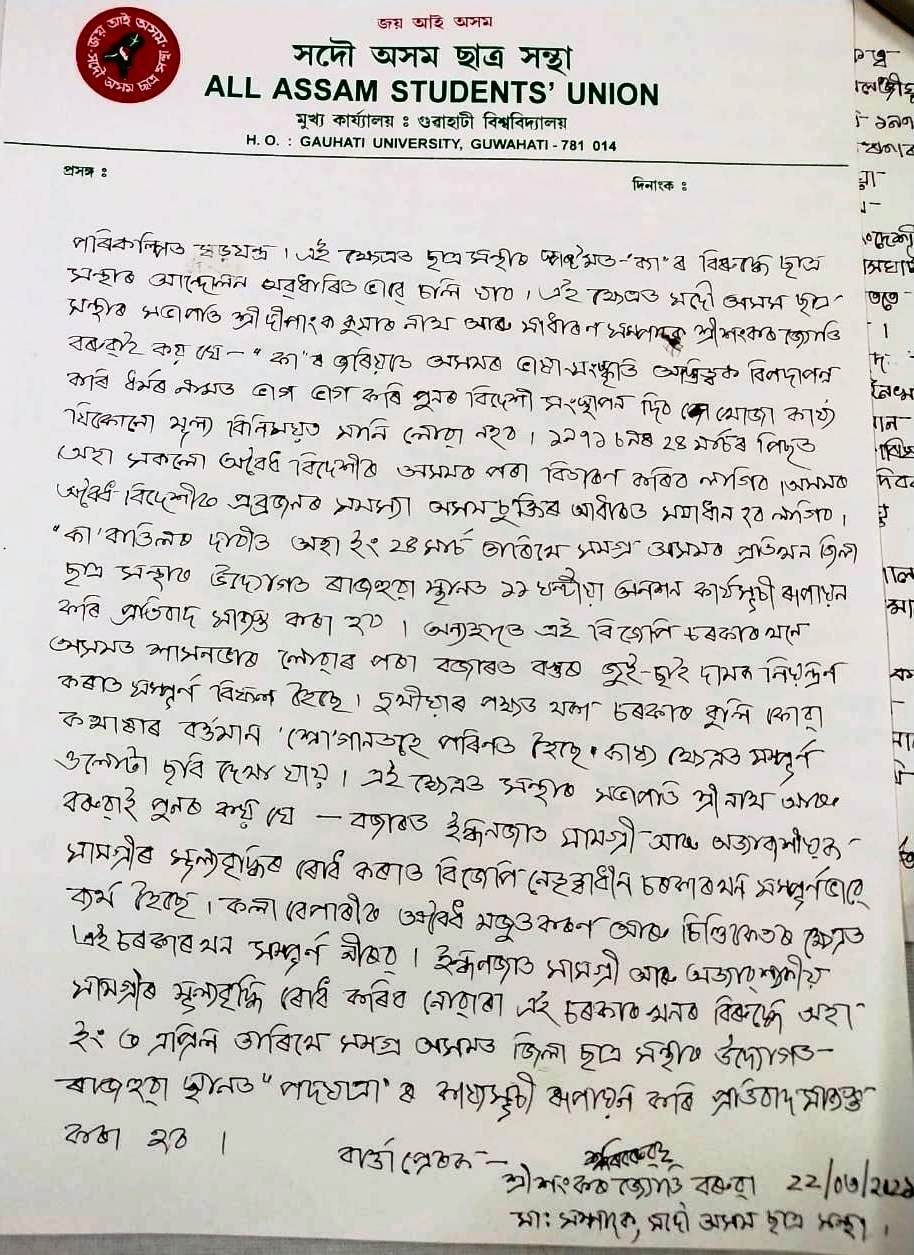 জয় আই অসম
সদৌ অসম ছাত্ৰ সন্থা
জয় আই অসম
সদৌ অসম ছাত্ৰ সন্থা
ALL ASSAM STUDENTS' UNION
মুখ্য কাৰ্য্যালয় ঃ গুৱাহাটী বিশ্ববিদ্যালয়
H. O. : GAUHATI UNIVERSITY, GUWAHATI - 781 014
প্ৰসঙ্গ ঃ
দিনাংক ঃ
পৰিকল্পিত ষড়যন্ত্ৰ । এই ক্ষেত্ৰত ছাত্ৰ সন্থাৰ 'কা'ৰ বিৰুদ্ধে ছাত্ৰ
সন্থাৰ আন্দোলন অবধাৰিত ভাৱে চলি যাব । এই ক্ষেত্ৰত সদৌ অসম ছাত্ৰ
সন্থাৰ সভাপতি শ্ৰী দীপাংক কুমাৰ নাথ আৰু সাধাৰণ সম্পাদক শ্ৰী শংকৰ জ্যোতি
বৰুৱাই কয় যে – "কা"ৰ জৰিয়তে অসমৰ ভাষা-সংস্কৃতি অস্তিত্বক বিপদাপন্ন
কৰি ধৰ্মৰ নামত ভাগ ভাগ কৰি পুনৰ বিদেশী সংস্থাপন দিব খোজা কাৰ্য্য
যিকোনো মূল্য বিনিময়ত মানি লোৱা নহব । ১৯৭১ চনৰ ২৪ মাৰ্চৰ পিছত
অহা সকলো অবৈধ বিদেশীক অসমৰ পৰা বিতাৰণ কৰিব লাগিব । অসমৰ
অবৈধ বিদেশীৰ প্ৰব্ৰজনৰ সমস্যা অসম চুক্তিৰ আধাৰত সমাধান হব লাগিব ।
"কা' বাতিলৰ দাবীত অহা ইং ২৪ মাৰ্চ তাৰিখে সমগ্ৰ অসমৰ প্ৰতিখন জিলা
ছাত্ৰ সন্থাৰ উদ্যোগত ৰাজহুৱা স্থানত ১১ ঘন্টীয়া অনশন কাৰ্যসূচী ৰূপায়ন
কৰি প্ৰতিবাদ সাব্যস্ত কৰা হব । অন্যহাতে এই বিজেপি চৰকাৰ খনে
অসমত শাসনভাৰ লোৱাৰ পৰা বজাৰত বস্তুৰ জুই-ছাই দামক নিয়ন্ত্ৰন
কৰাত সম্পূৰ্ণ বিফল হৈছে । দুখীয়াৰ পক্ষত থকা চৰকাৰ বুলি কোৱা
কথাষাৰ বৰ্ত্তমান 'শ্লোগানতহে পৰিনত হৈছে । কাৰ্য্য ক্ষেত্ৰত সম্পূৰ্ণ
ওলোটা ছবি দেখা যায় । এই ক্ষেত্ৰত সন্থাৰ সভাপতি শ্ৰী নাথ আৰু
বৰুৱাই পুনৰ কয় যে – বজাৰত ইন্ধনজাত সামগ্ৰী আৰু অত্যাৱশ্যকীয়
সামগ্ৰীৰ মূল্যবৃদ্ধিৰ ৰোধ কৰাত বিজেপি নেতৃত্বাধীন চৰকাৰখন সম্পূৰ্ণভাৱে
ব্যৰ্থ হৈছে । কলা বেপাৰীৰ অবৈধ মজুতকৰণ আৰু চিণ্ডিকেতৰ ক্ষেত্ৰত
এই চৰকাৰ খন সম্পূৰ্ণ নীৰৱ । ইন্ধনজাত সামগ্ৰী আৰু অত্যাৱশ্যকীয়
সামগ্ৰীৰ মূল্যবৃদ্ধি ৰোধ কৰিব নোৱাৰা এই চৰকাৰ খনৰ বিৰুদ্ধে অহা
ইং ৩ এপ্ৰিল তাৰিখে সমগ্ৰ অসমত জিলা ছাত্ৰ সন্থাৰ উদ্যোগত
ৰাজহুৱা স্থানত "পদযাত্ৰা'ৰ কাৰ্য্যসূচী ৰূপায়ন কৰি প্ৰতিবাদ সাব্যস্ত
কৰা হব ।
বাৰ্ত্তা প্ৰেৰক –
শ্ৰী শংকৰ জ্যোতি বৰুৱা 22/03/2021
সাঃ সম্পাদক, সদৌ অসম ছাত্ৰ সন্থা ।